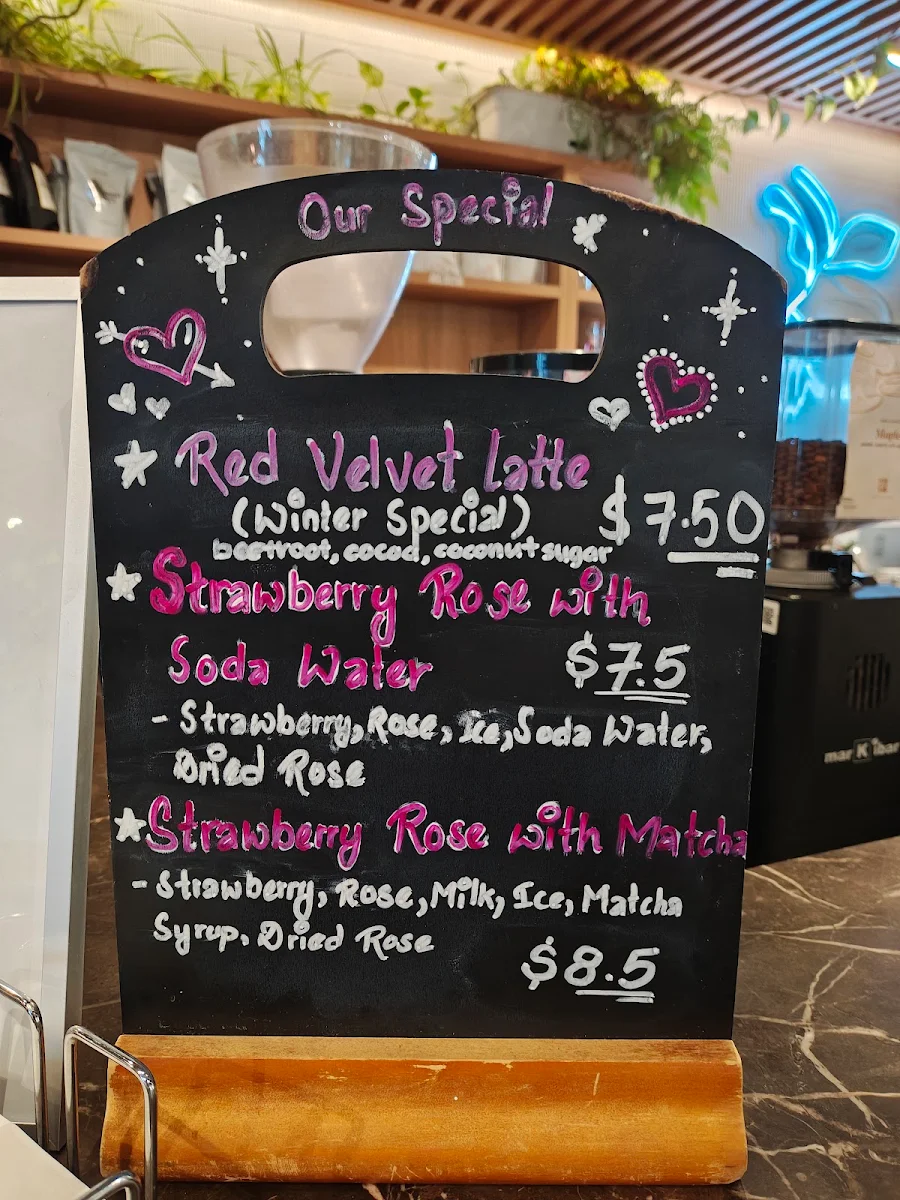 Our Special
Red Velvet latte
(Winter Special)
$7.50
beetroot, cocoa, coconut sugar
Strawberry Rose with
Soda Water
$7.5
- Strawberry, Rose, Ice, Soda Water,
Dried Rose
Strawberry Rose with Matcha
- Strawberry, Rose, Milk, Ice, Matcha
Syrup, Dried Rose
$8.5
mar K ibar